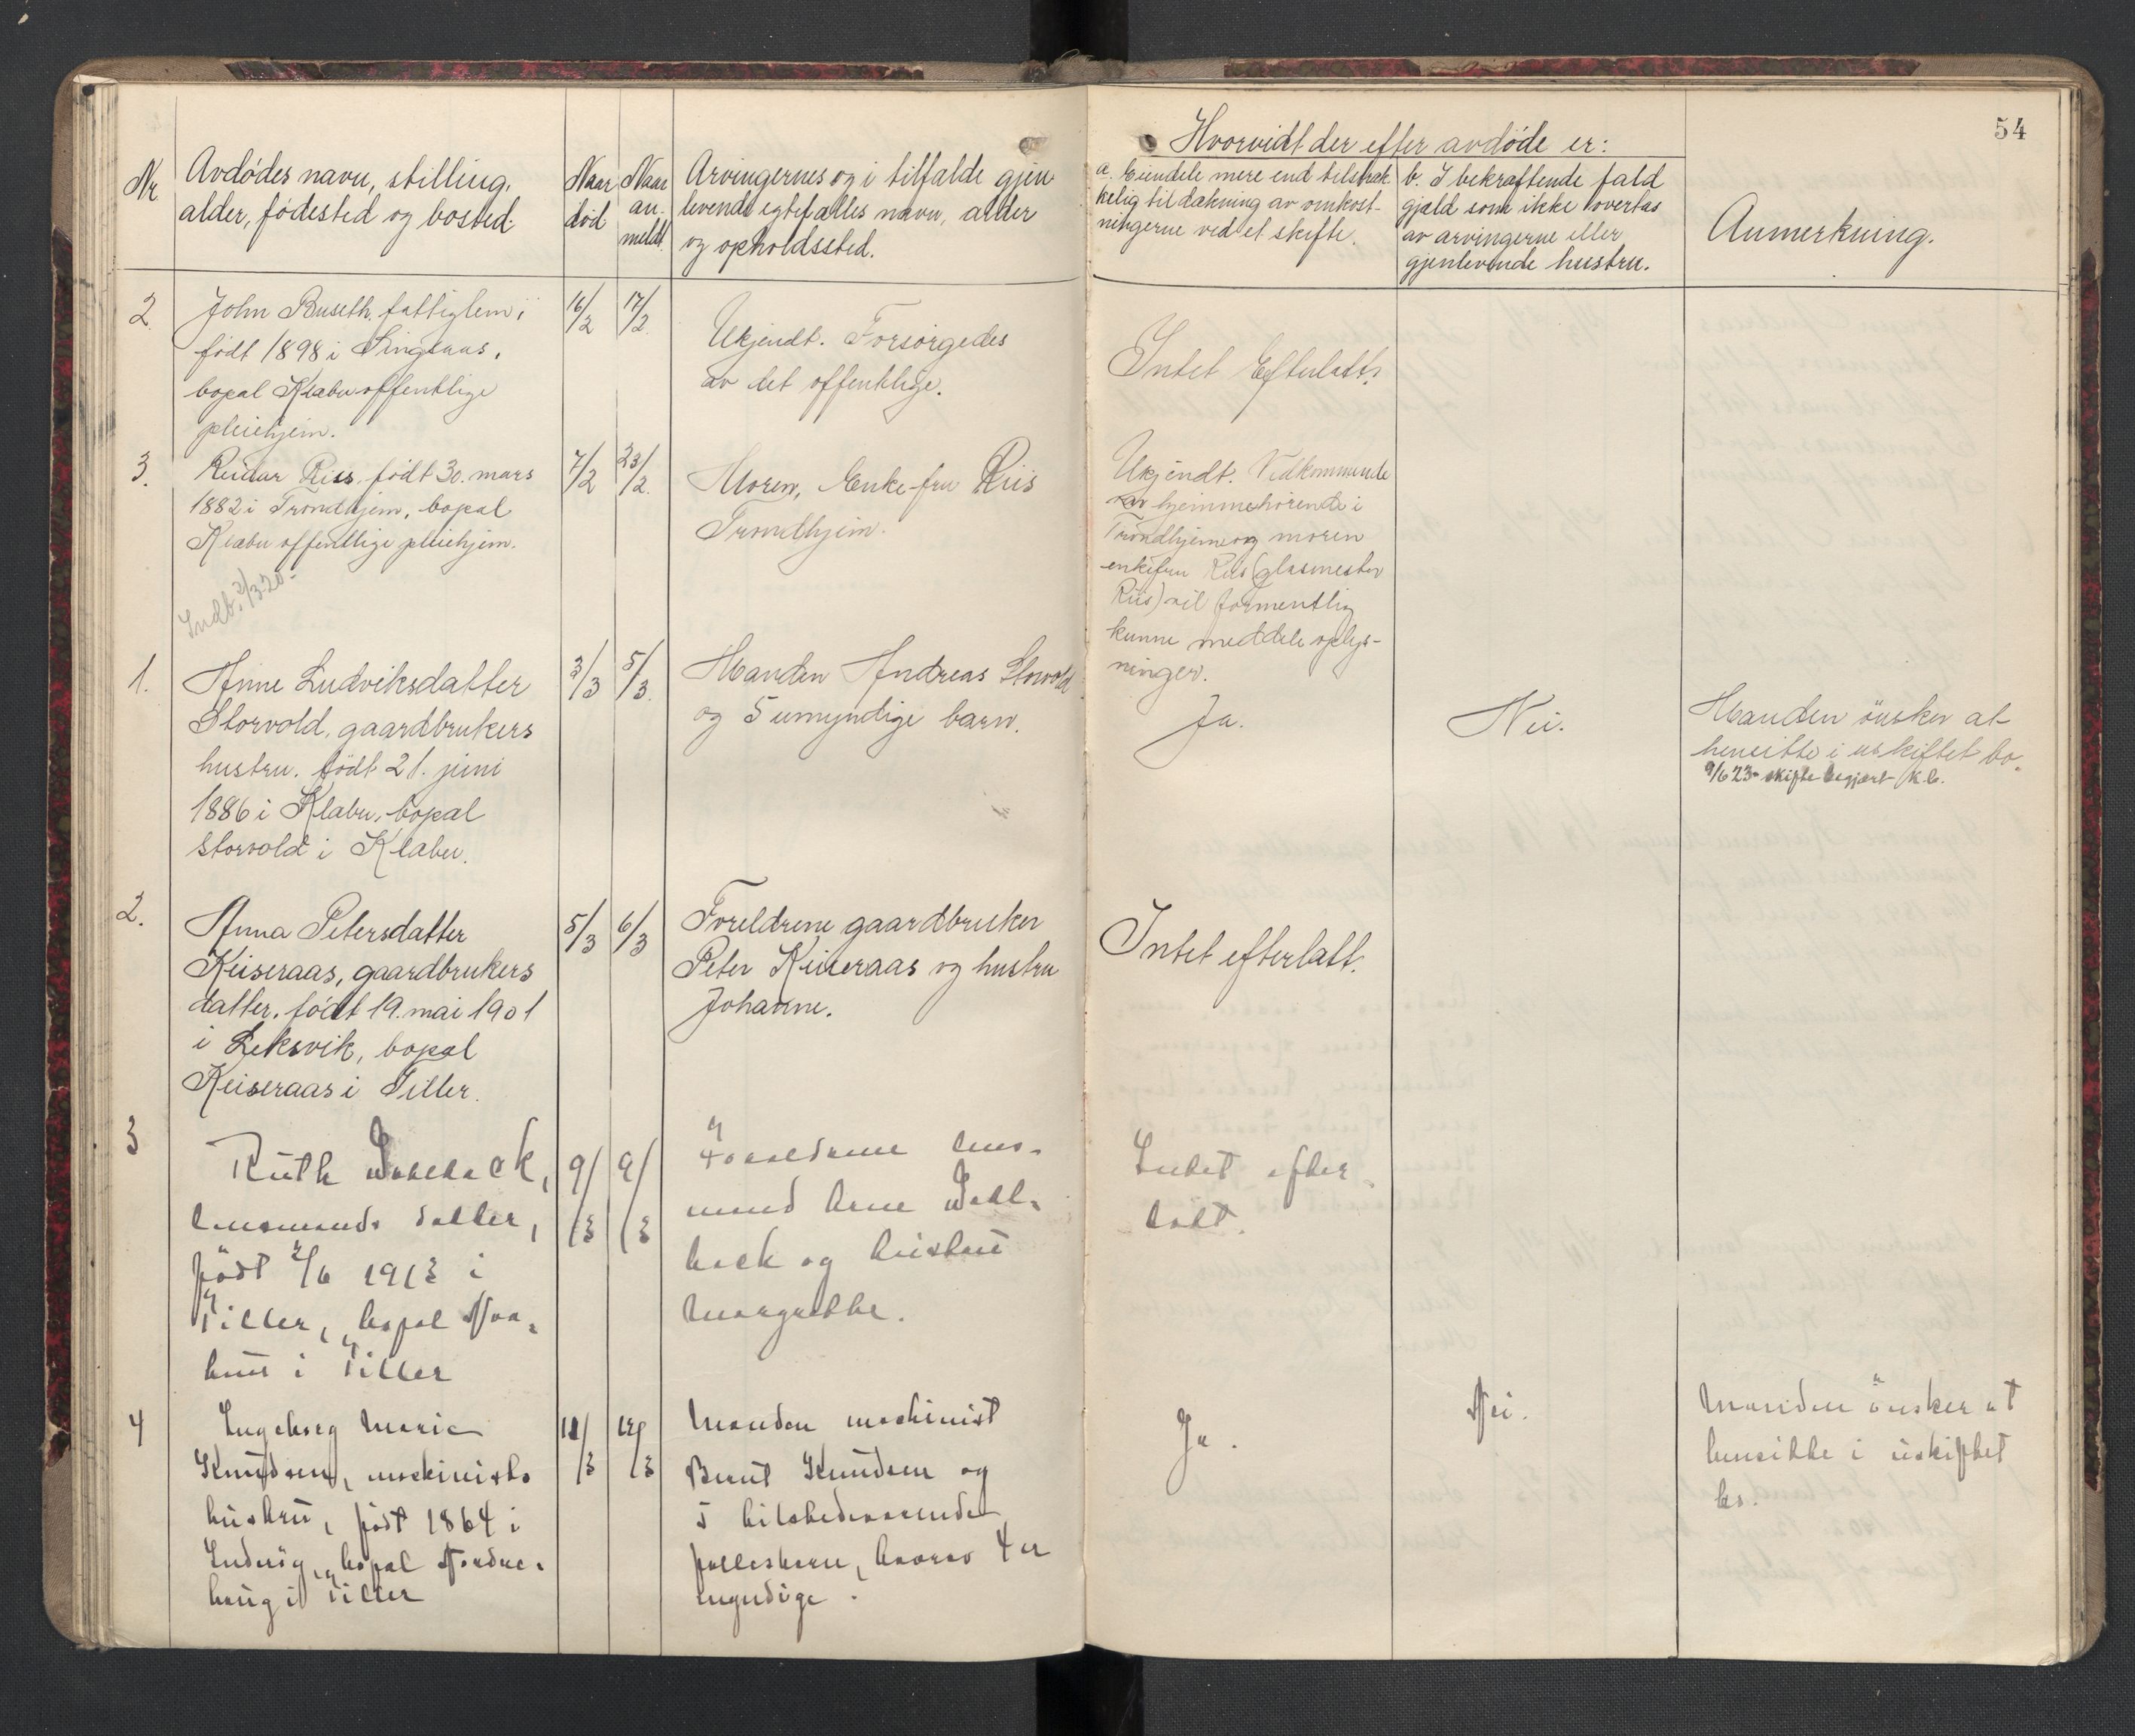 54
Nr
Avdødes navn, stilling,
alder, fødested og bosted.
Naar
død
Naar
an-
meldt.
Arvingernes og i tilfælde gjen
levende egtefælles navn, alder
og opholdssted.
Hvorvidt der efter avdøde er:
a. Eiendele mere end tilstræk-
kelig til dækning av omkost-
ningerne ved et skifte.
b. I bekræftende fald
gjæld som ikke overtas
av arvingerne eller
gjenlevende hustru.
Anmerkning.
2.
John Buseth, fattiglem,
født 1898 i Singsaas,
bopæl Klæbu offentlige
pleiehjem.
16/2
17/2.
Ukjendt. Forsørgedes
av det offentlige.
Intet Efterlatt.
3.
Reidar Riss, født 30. mars
1882 i Trondhjem, bopæl
Klæbu offentlige pleiehjem.
7/2
23/2.
Moren, Enke-fru Riis
Trondhjem.
Ukjendt. Vedkommende
var hjemmehørende i
Trondhjem og moren
enkefru Riis (glasmester
Riis) vil formentlig
kunne meddele oplys-
ninger.
Indb. 3/3-20-
1.
Anne Ludviksdatter
Storvold, gaardbrukers
hustru. født 21. juni
1886 i Klæbu, bopæl
Storvold i Klæbu.
3/3
5/3.
Manden Andreas Storvold
og 5 umyndige barn.
Ja.
Nei.
Manden ønsker at
hensitte i uskiftet bo.
9/6 23- skifte begjært K.b.
2.
Anna Petersdatter
Keiseraas, gaardbrukers
datter, født 19. mai 1901
i Leksvik, bopæl
Keiseraas i Tiller.
5/3
6/3
Foreldrene gaardbruker
Peter Keiseraas og hustru
Johanne.
Intet efterlatt.
3
Ruth
husmands datter,
født 2/6 1913 i
Tiller, bopæl
i Tiller
9/3
9/3
Forældrene hus-
mand Arne
og hustru
Margrethe.
Intet efter-
latt.
4
Ingeborg Marie
Knudsen, maskinists
hustru, født 1864 i
Inderøy, bopæl
haug i Tiller
11/3
12/3
Manden maskinist
Bernt Knudsen og
5 tilstedeværende
fællesbarn, hvorav 4 er
myndige.
Ja.
Nei.
Manden ønsker at
hensitte i uskiftet
bo.